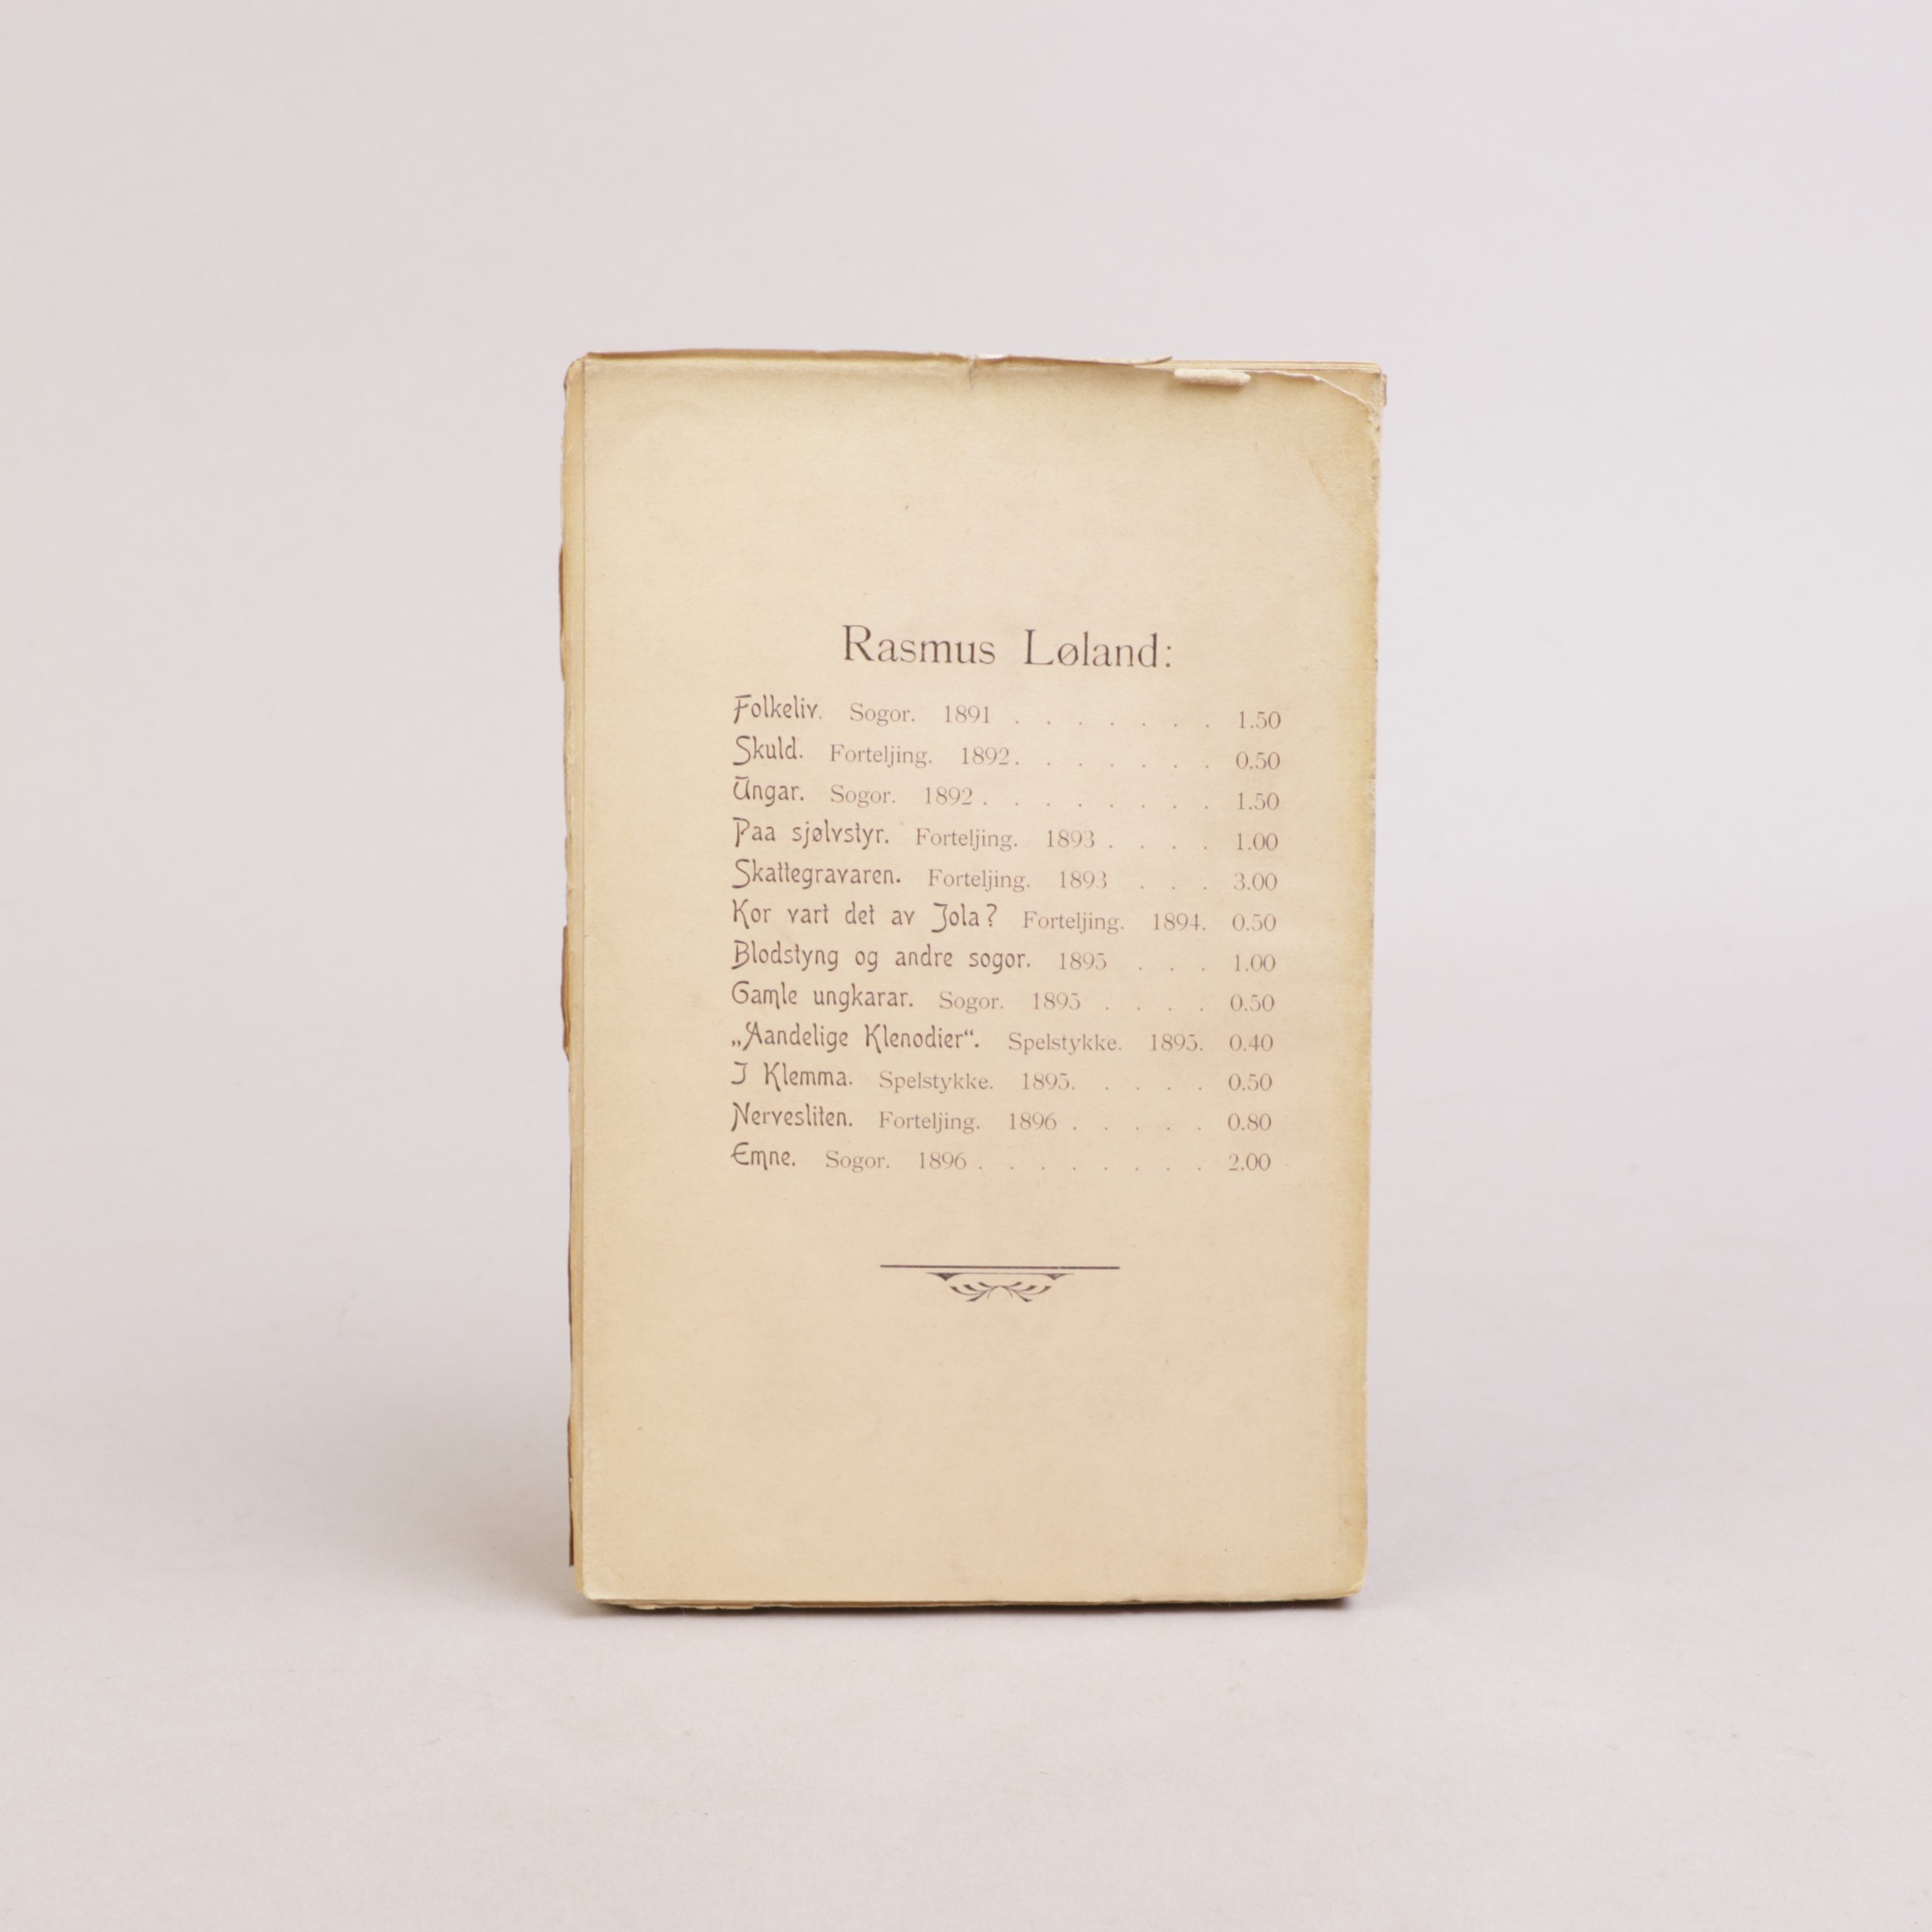 Rasmus Løland:
Folkeliv. Sogor. 1891 . . . . . . . 1.50
Skuld. Forteljing. 1892. . . . . . . 0.50
Ungar. Sogor. 1892 . . . . . . . . 1.50
Paa sjølvstyr. Forteljing. 1893 . . . . 1.00
Skattegravaren. Forteljing. 1893 . . . 3.00
Kor vart det av Jola? Forteljing. 1894. 0.50
Blodstyng og andre sogor. 1895 . . . 1.00
Gamle ungkarar. Sogor. 1895 . . . . 0.50
„Aandelige Klenodier“. Spelstykke. 1895. 0.40
I Klemma. Spelstykke. 1895. . . . . 0.50
Nervesliten. Forteljing. 1896 . . . . . 0.80
Emne. Sogor. 1896 . . . . . . . . 2.00